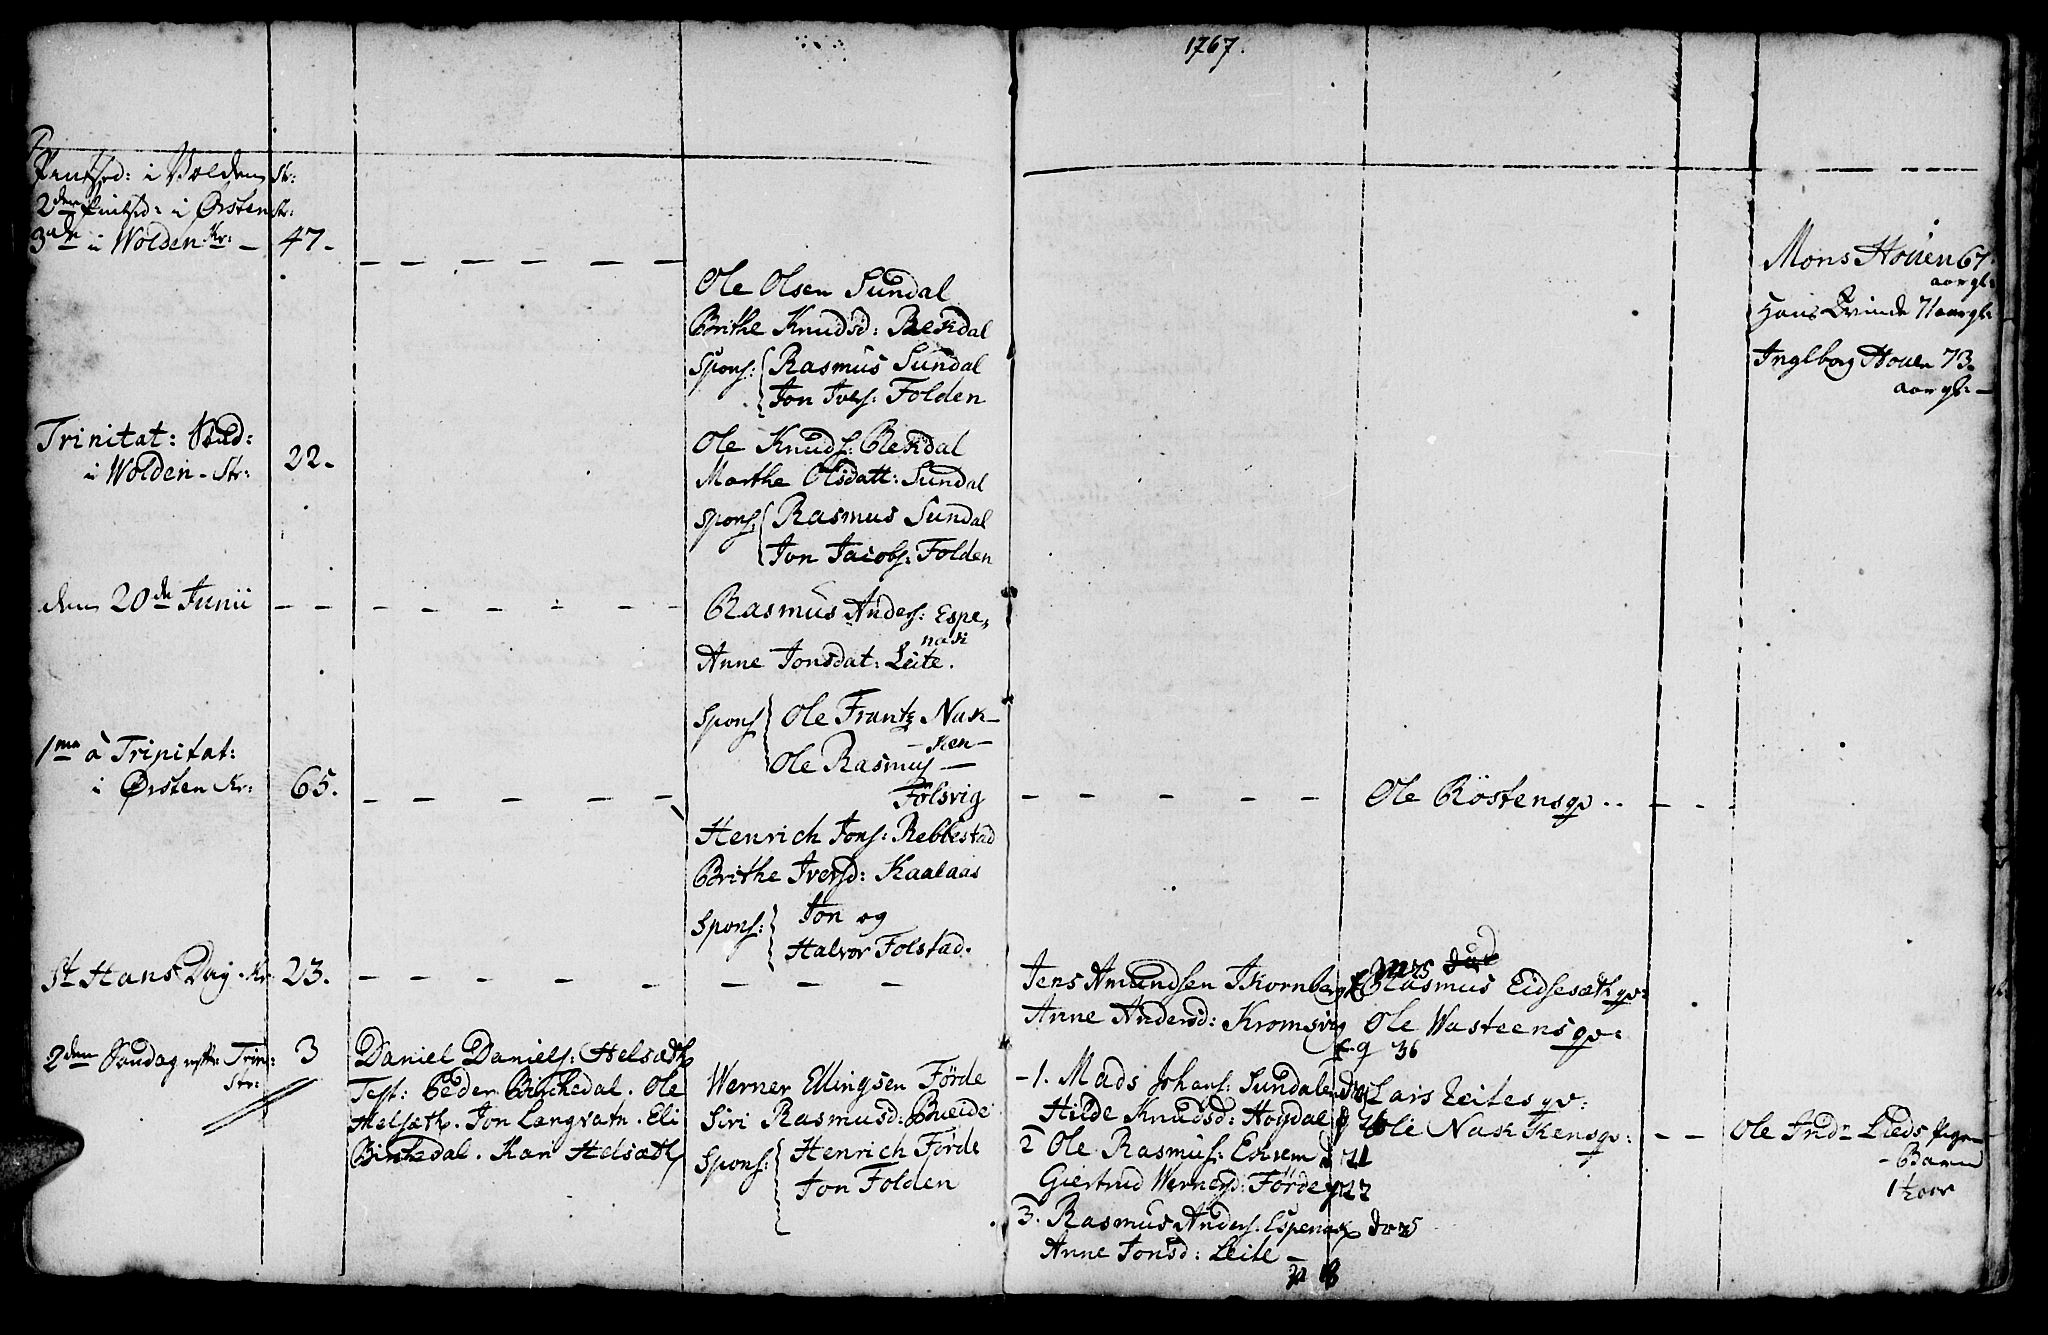 1767.
Pintsed: i Volden Str:
2den Pintsed: i Ørsten Str:
3die i Wolden Kr: - 47.
Ole Olsen Sundal
Brithe Knudsd: Rekdal
Spons: Rasmus Sundal
Jon Ivers: Folden
Mons Houen 67
aar gl:
Hans Qvinde 71 aar gl:
Ingeborg Houen 73.
aar gl: -
Trinitat: Sønd:
i Wolden - Str: 22.
Ole Knuds: Rekdal
Marthe Olsdatt: Sundal
Spons: Rasmus Sundal
Jon Jacobs: Folden
den 20de Junii
Rasmus Anders: Espe-
nak
Anne Jonsdat: Leite.
Spons Ole Frantz Nak-
-ken-
Ole Rasmus -
Fölsvig
1ma à Trinitat:
i Ørsten Kr: 65.
Ole Röstens qv..
Henrich Jons: Rebbestad
Brithe Iversd: Kaalaas
Spons: Jon og
Halvor Folstad.
St Hans Dag. Kr 23.
Jens Amundsen
Anne Andersd: Kromsvig
36
Rasmus Eidseseth qv:
Ole Wasteens qv:
2den Søndag efter Trin:
Str: 3
Daniel Daniels: Helsæth
Test: Peder Birkedal. Ole
Helsæth. Jon Langvatn. Eli
Birkedal. Kari Helsæth
Werner Ellingsen Förde
Siri Rasmusd: Bueide
Spons: Henrich Förde
Jon Folden
-1. Mads Johans: Sundal
Hilde Knudsd: Hogdal
2 Ole Rasmus: Eknem
Giertrud Wernersd: Förde
3. Rasmus Anders. Espenak
Anne Jonsd: Leite -
Lars Leites qv:
Ole Nakkens qv:
Ole Lieds Pige-
- Barn
1 1/2 aar